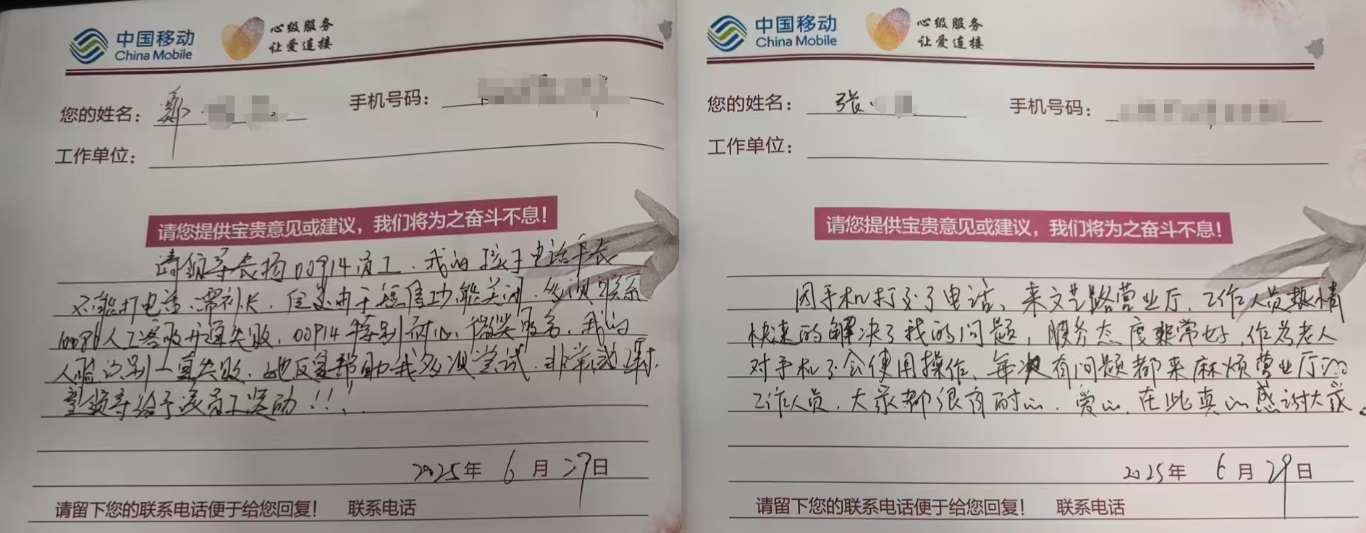 中国移动
China Mobile
心级服务
让爱连接
您的姓名：郑
手机号码：
工作单位：
请您提供宝贵意见或建议，我们将为之奋斗不息！
请领导表扬00914员工，我的孩子电话手表
不能打电话需补卡，但是由于短信功能关闭，多次联系
10086人工客服开通失败，00914特别耐心，微笑服务，我的
人脸识别一直失败，她反复帮助我多次尝试，非常感谢，
望领导给予该员工奖励！！！
2025年6月29日
请留下您的联系电话便于给您回复！ 联系电话
中国移动
China Mobile
心级服务
让爱连接
您的姓名：张
手机号码：
工作单位：
请您提供宝贵意见或建议，我们将为之奋斗不息！
因手机打不了电话，来文艺路营业厅，工作人员热情
快速的解决了我的问题，服务态度非常好，作为老人
对手机不会使用操作，每次有问题都来麻烦营业厅的
工作人员，大家都很有耐心，爱心，在此真心感谢大家
2025年6月29日
请留下您的联系电话便于给您回复！ 联系电话